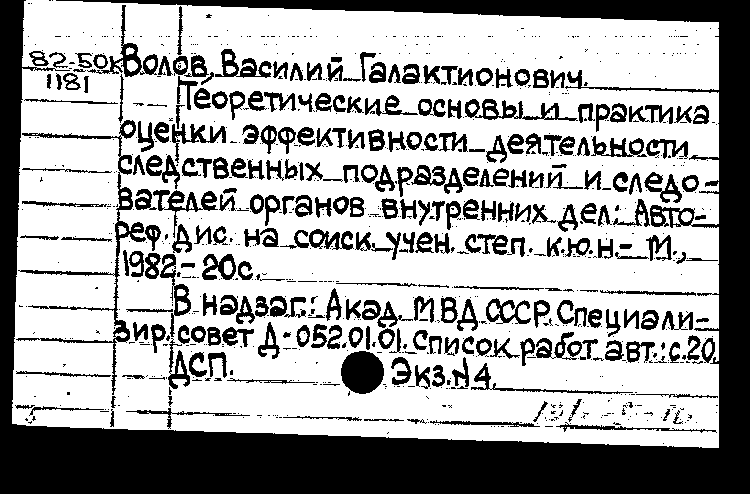 82-50к Волов, Василий Галактионович.
1181
Теоретические основы и практика
оценки эффективности деятельности
следственных подразделений и следо-
вателей органов внутренних дел: Авто-
реф. дис. на соиск. учен. степ. к.ю.н.- М.,
1982.- 20с.
В надзаг.: Акад. МВД СССР. Специали-
зир. совет Д-052.01.01. Список работ авт.: с.20.
ДСП. Экз.№4.